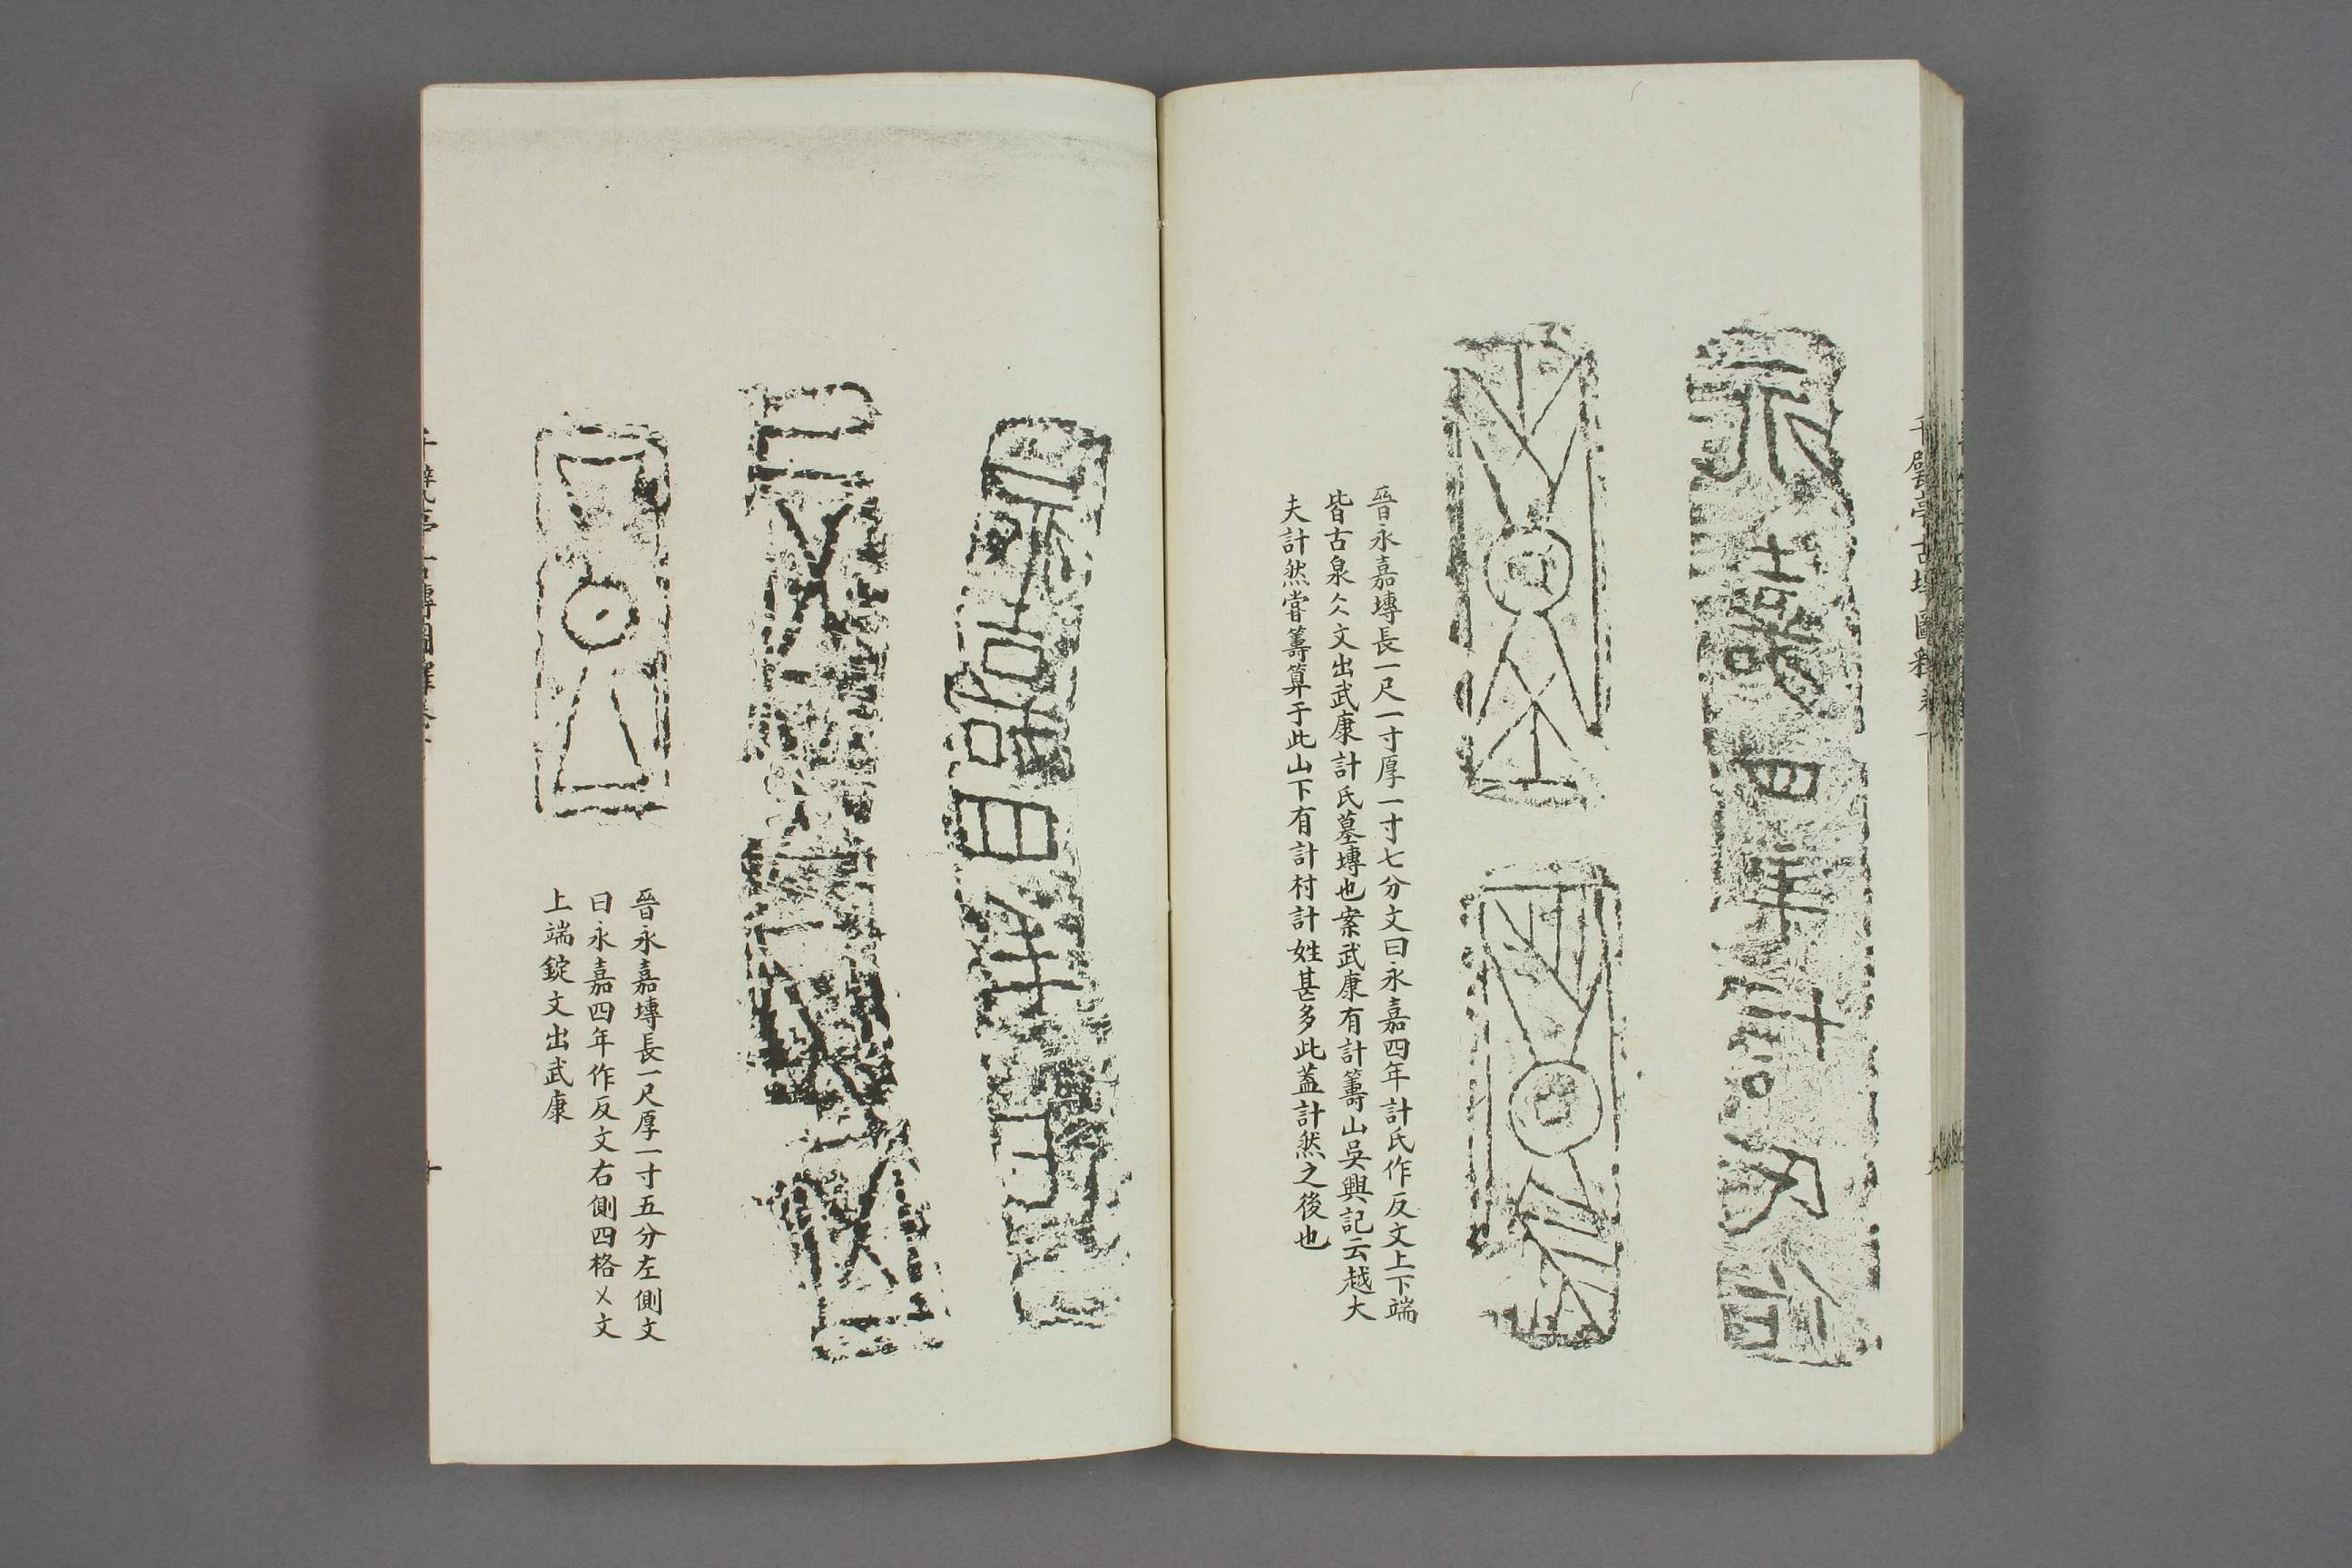 千甓亭古塼圖釋卷
晉永嘉塼長一尺一寸厚一寸七分文曰永嘉四年計氏作反文上下端
皆古泉仌文出武康計氏墓塼也案武康有計籌山吳興記云越大
夫計然嘗籌算于此山下有計村計姓甚多此蓋計然之後也
晉永嘉塼長一尺厚一寸五分左側文
曰永嘉四年作反文右側四格㐅文
上端錠文出武康